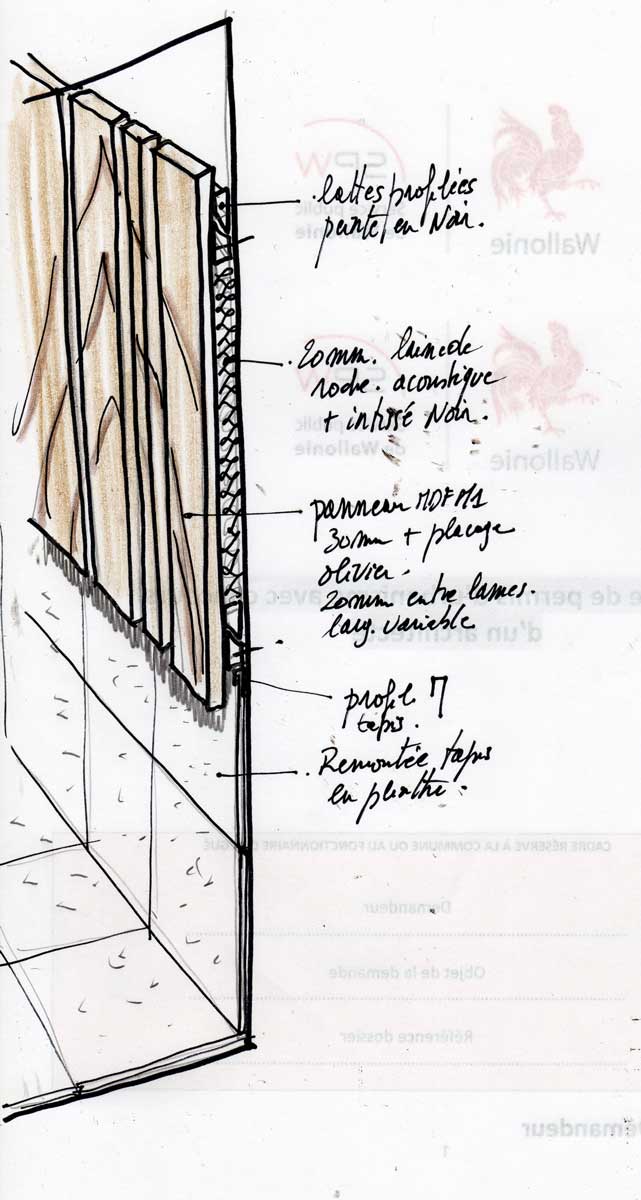 . lattes profilées
peinte, en Noir.
. 20mm. laine de
roche. acoustique
+ intissé Noir.
panneau MDF M1
30mm + placage
olivier.
20mm entre lames.
larg. variable
profil
tapis.
. Remontée tapis
en plinthe.
SPW
Service public
de Wallonie
Wallonie
SPW
public
de Wallonie
Wallonie
e de permis d'urbanisme avec
d'un architecte
CADRE RÉSERVÉ À LA COMMUNE OU AU FONCTIONNAIRE
Demandeur
Objet de la demande
Référence dossier
Demandeur
1